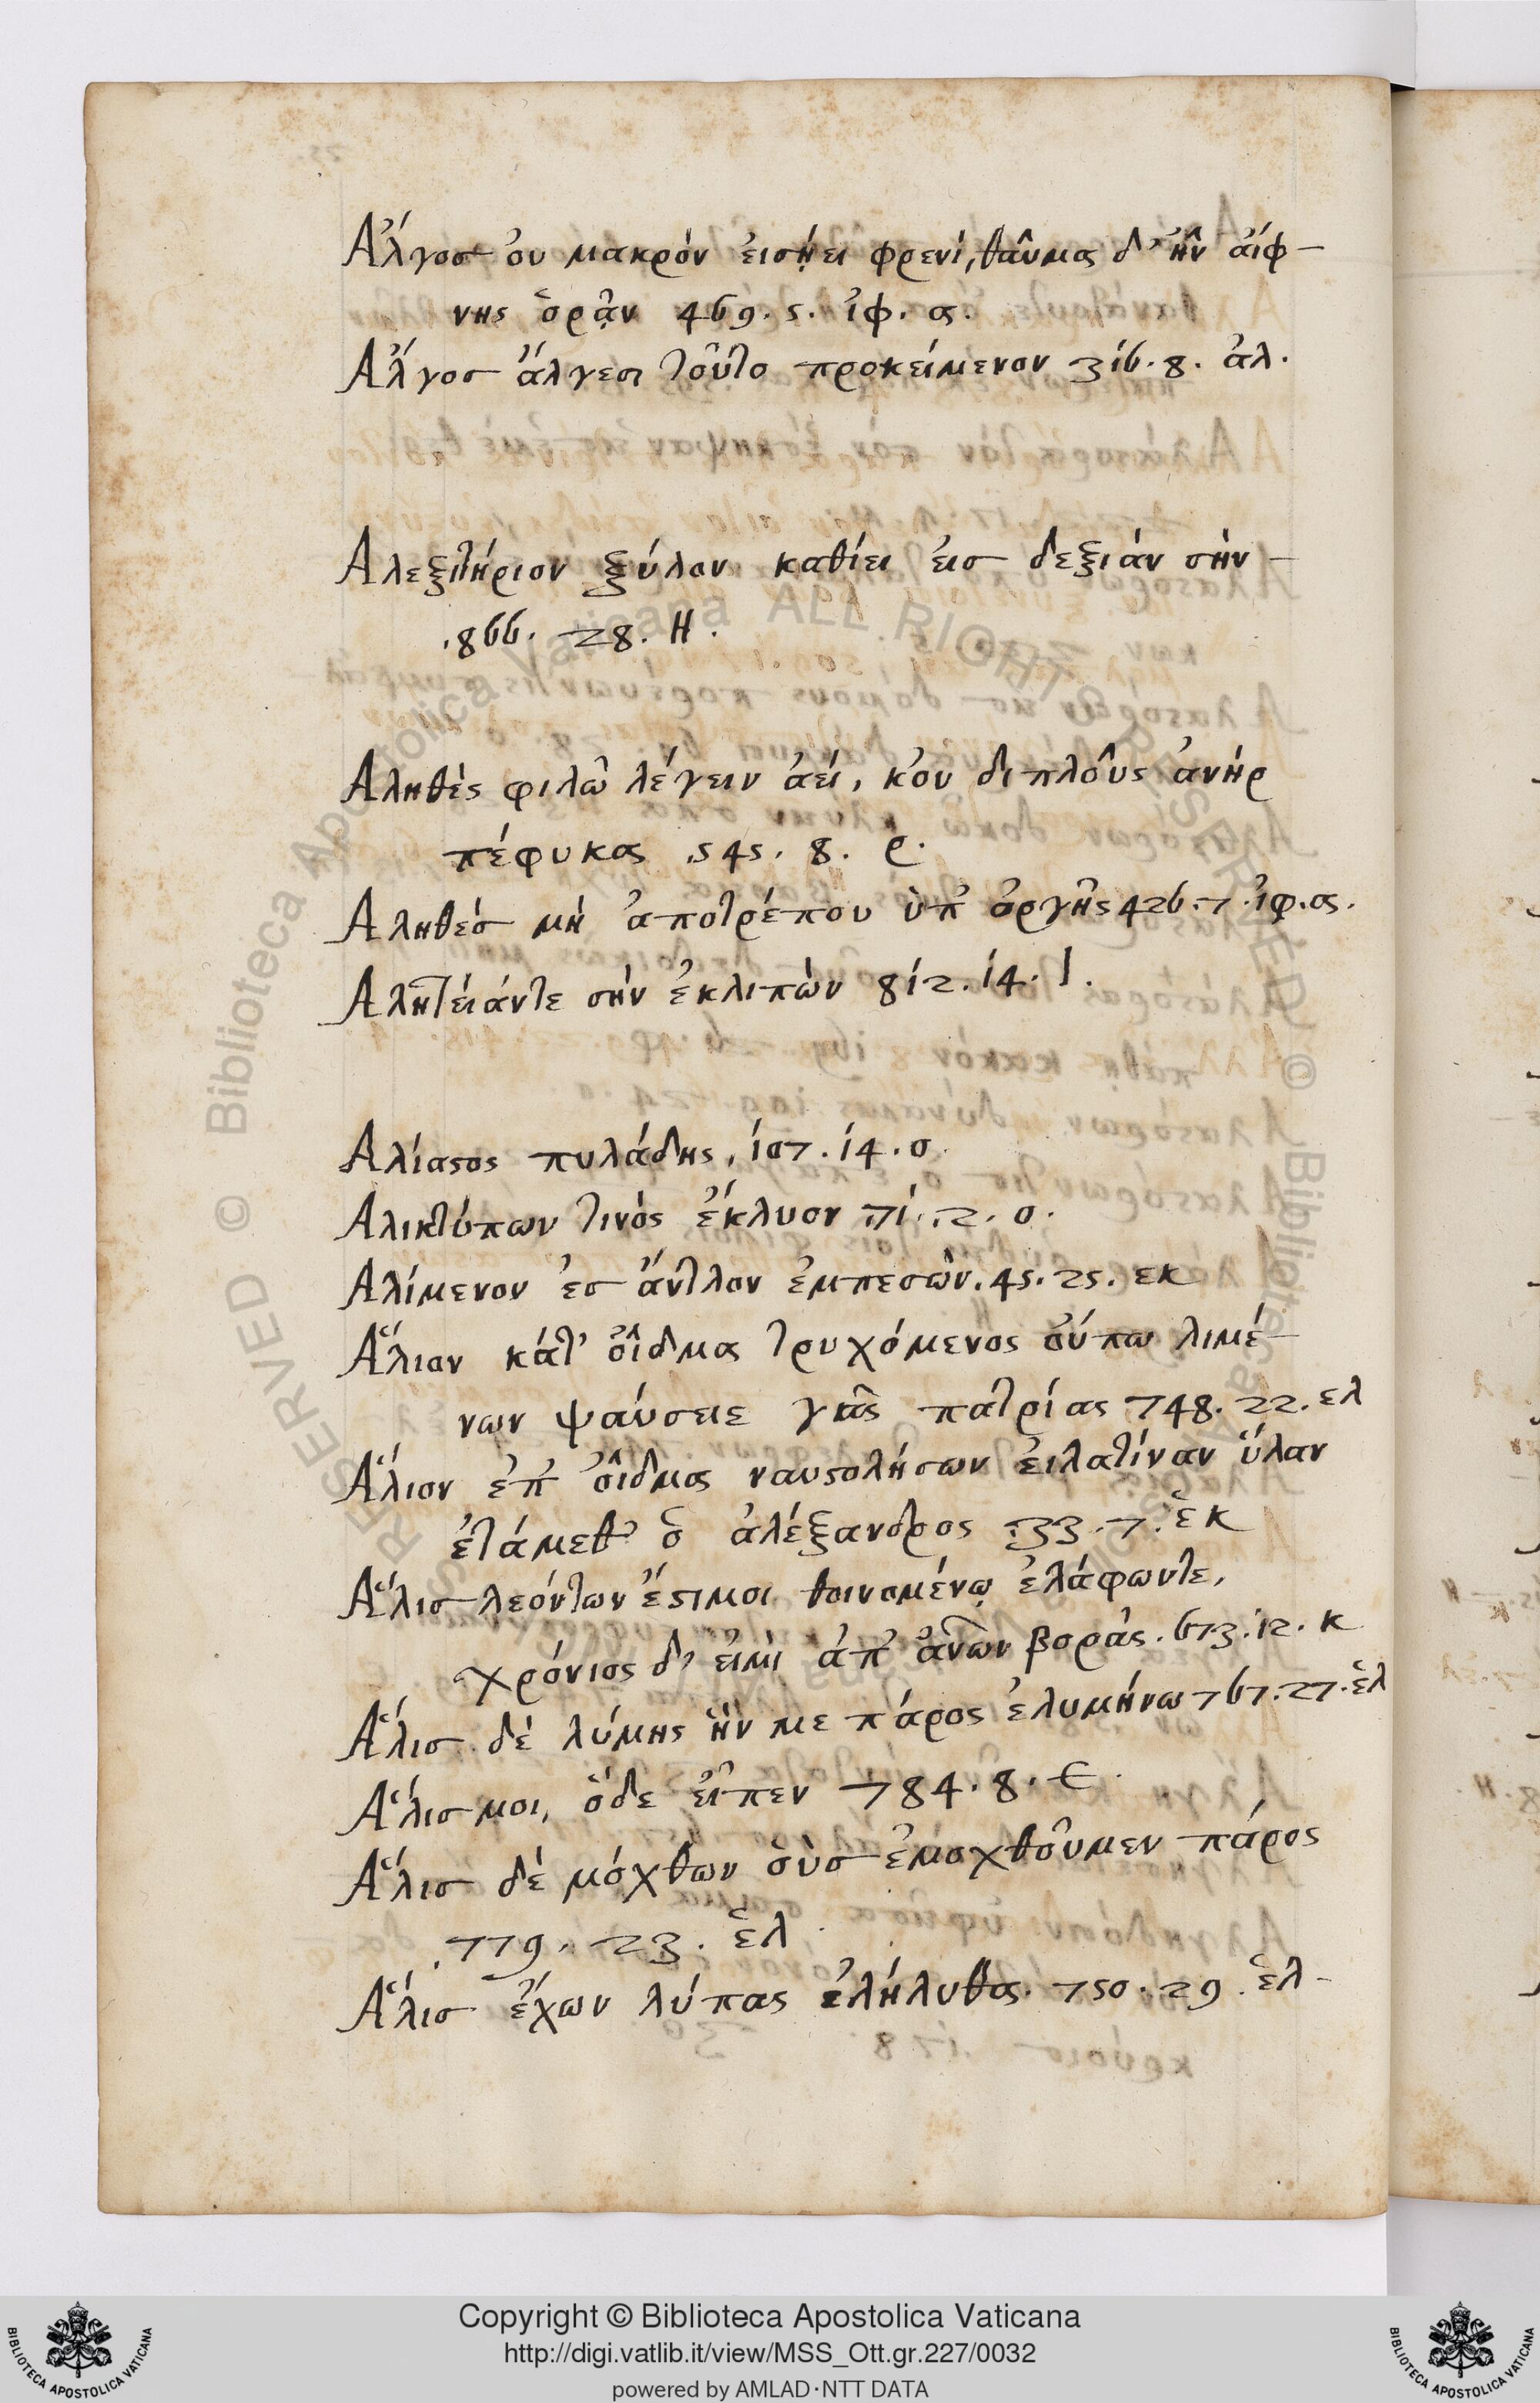 Ἄλγος ὀυ μακρὸν ἐισήει φρενὶ, θαῦμα δ᾽ ἦν ἀίφ-
νης ὁρᾷν 469. 5. ἰφ. α.
Ἄλγος ἄλγεσι τοῦτο προκείμενον 316. 8. ἀλ.
Αλεξιτήριον ξύλον καθίει ἐις δεξιὰν σὴν -
.866. 28. Η.
Αληθὲς φιλῶ λέγειν ἀεὶ, κ᾽ου διπλοῦς ἀνὴρ
πέφυκα .545. 8. ρ.
Αληθὲς μὴ ἀποτρέπου ὑπ᾽ ὀργῆς 426. 7. ἰφ. α.
Αλητείάντε σὴν ἐκλιπὼν 812. 14. Ι.
Αλίαστος πυλάδης, 107. 14. ο.
Αλικτύπων τινὸς ἔκλυον 71. 2. ο.
Αλίμενον ἐς ἄντλον ἐμπεσὼν. 45. 25. εκ
Ἅλιον κάτ᾽ οἶδμα τρυχόμενος οὔπω λιμέ-
νων ψαύσειε γᾶς πατρίας 748. 22. ελ
Ἅλιον ἐπ᾽ οἶδμα ναυστολήσων ἐιλατίναν ὕλαν
ἐτάμεθ᾽ ὁ ἀλέξανδρος .33. 7. ἑκ
Ἅλις λεόντων ἔστι μοι θοινομένῳ ἐλάφωντε,
χρόνιος δ᾽ εἰμὶ ἀπ᾽ ἀνῶν βορᾶς. 673. 12. κ
Ἅλις δὲ λύμης ἥν με πάρος ἐλυμήνω 767. 27. ἑλ
Ἅλις μοι, ὅδε εἶπεν 784. 8. Ε.
Ἅλις δὲ μόχθων οὓς ἐμοχθοῦμεν πάρος
.779. 23. ἑλ
Ἅλις ἔχων λύπας ἐλήλυθα. 750. 29. ἑλ-
Copyright © Biblioteca Apostolica Vaticana
http://digi.vatlib.it/view/MSS_Ott.gr.227/0032
powered by AMLAD·NTT DATA